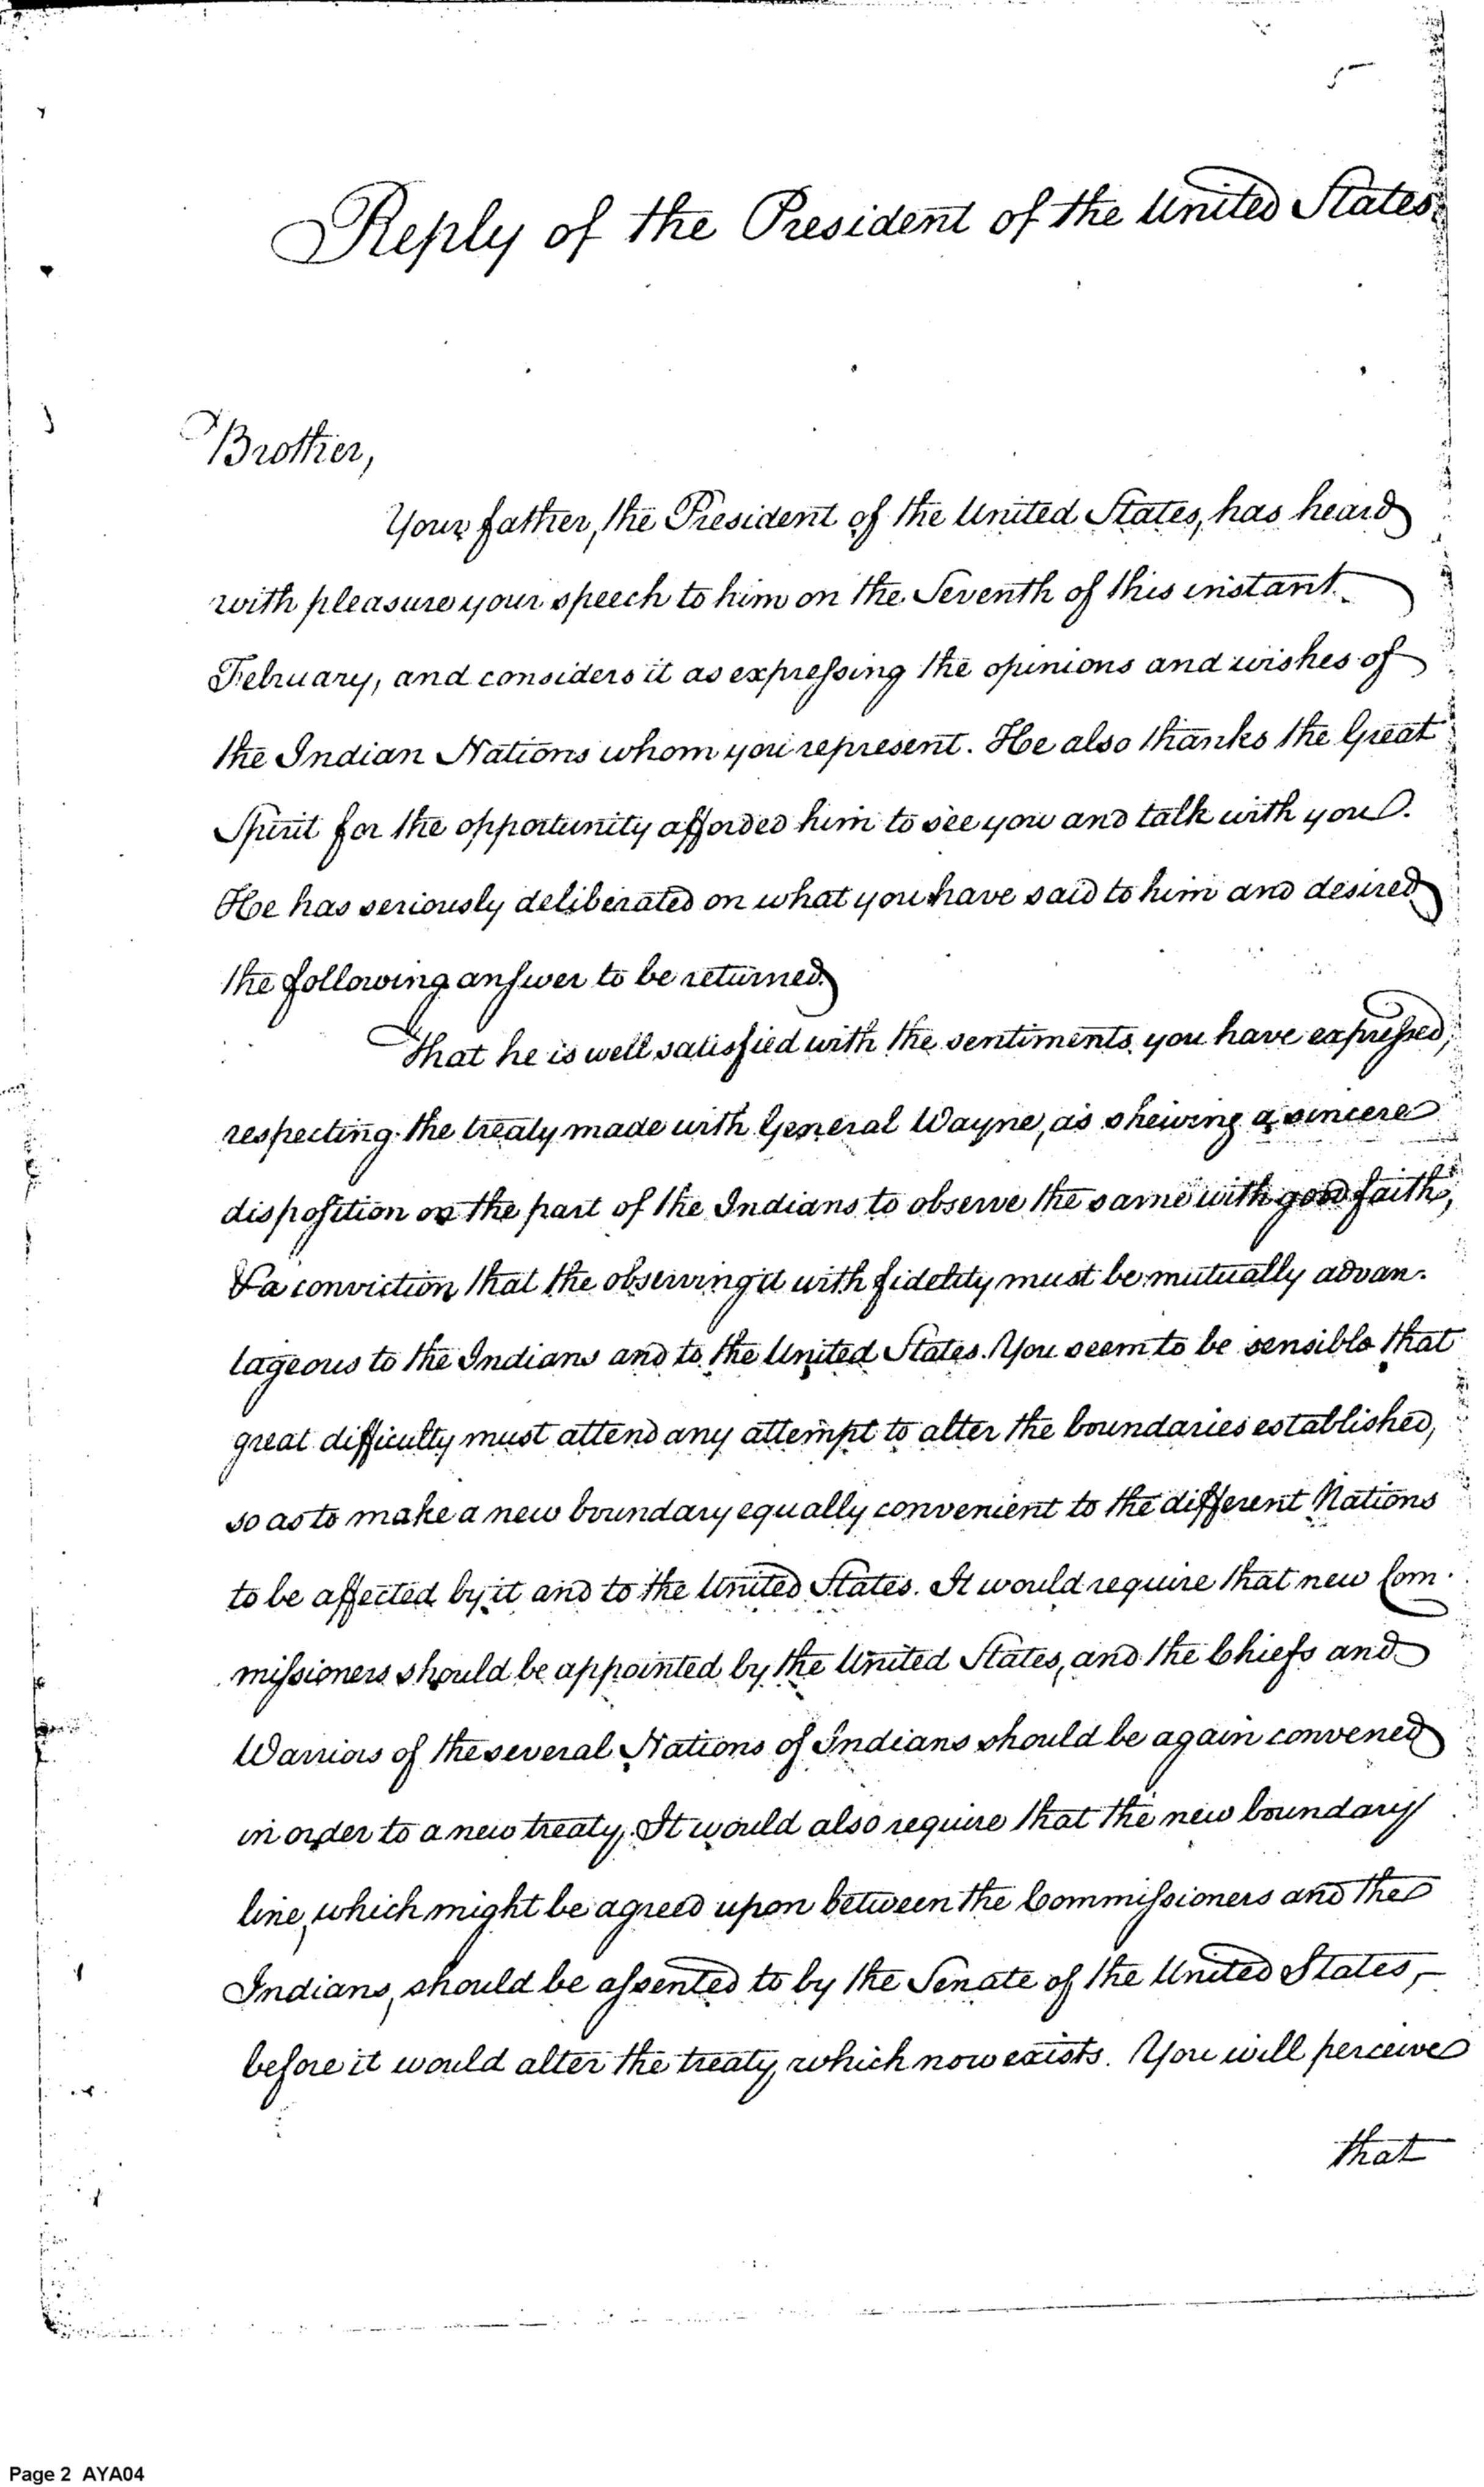 Reply of the President of the United States
Brother,
Your father, the President of the United States, has heard
with pleasure your speech to him on the Seventh of this instant
February, and considers it as expreſsing the opinions and wishes of
the Indian Nations whom you represent. He also thanks the Great
Spirit for the opportunity afforded him to see you and talk with you.
He has seriously deliberated on what you have said to him and desired
the following anſwer to be returned.
That he is well satisfied with the sentiments you have expreſsed,
respecting the treaty made with General Wayne, as shewing a sincere
dispoſition on the part of the Indians to observe the same with good faith,
& a conviction that the observing it with fidelity must be mutually advan-
tageous to the Indians and to the United States. You seem to be sensible that
great difficulty must attend any attempt to alter the boundaries established,
so as to make a new boundary equally convenient to the different Nations
to be affected by it and to the United States. It would require that new Com-
miſsioners should be appointed by the United States, and the Chiefs and
Warriors of the several Nations of Indians should be again convened
in order to a new treaty. It would also require that the new boundary
line, which might be agreed upon between the Commiſsioners and the
Indians, should be aſsented to by the Senate of the United States,
before it would alter the treaty, which now exists. You will perceive
that
Page 2 AYA04